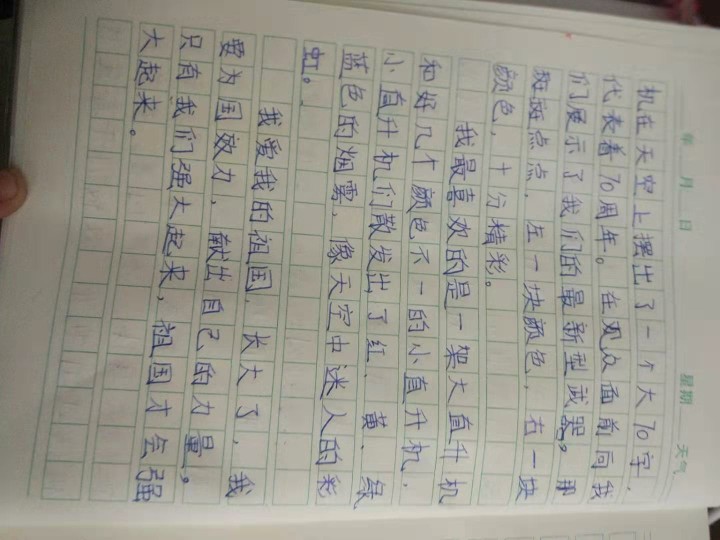 年 月 日 星期 天气
机在天空上摆出了一个大70字，
代表着70周年。在观众面前向我
们展示了我们的最新型武器。那
斑斑点点，左一块颜色，右一块
颜色，十分精彩。
我最喜欢的是一架大直升机
和好几个颜色不一的小直升机，
小直升机们散发出了红、黄、绿
蓝色的烟雾，像天空中迷人的彩
虹。
我爱我的祖国，长大了，我
要为国效力，献出自己的力量。
只有我们强大起来，祖国才会强
大起来。